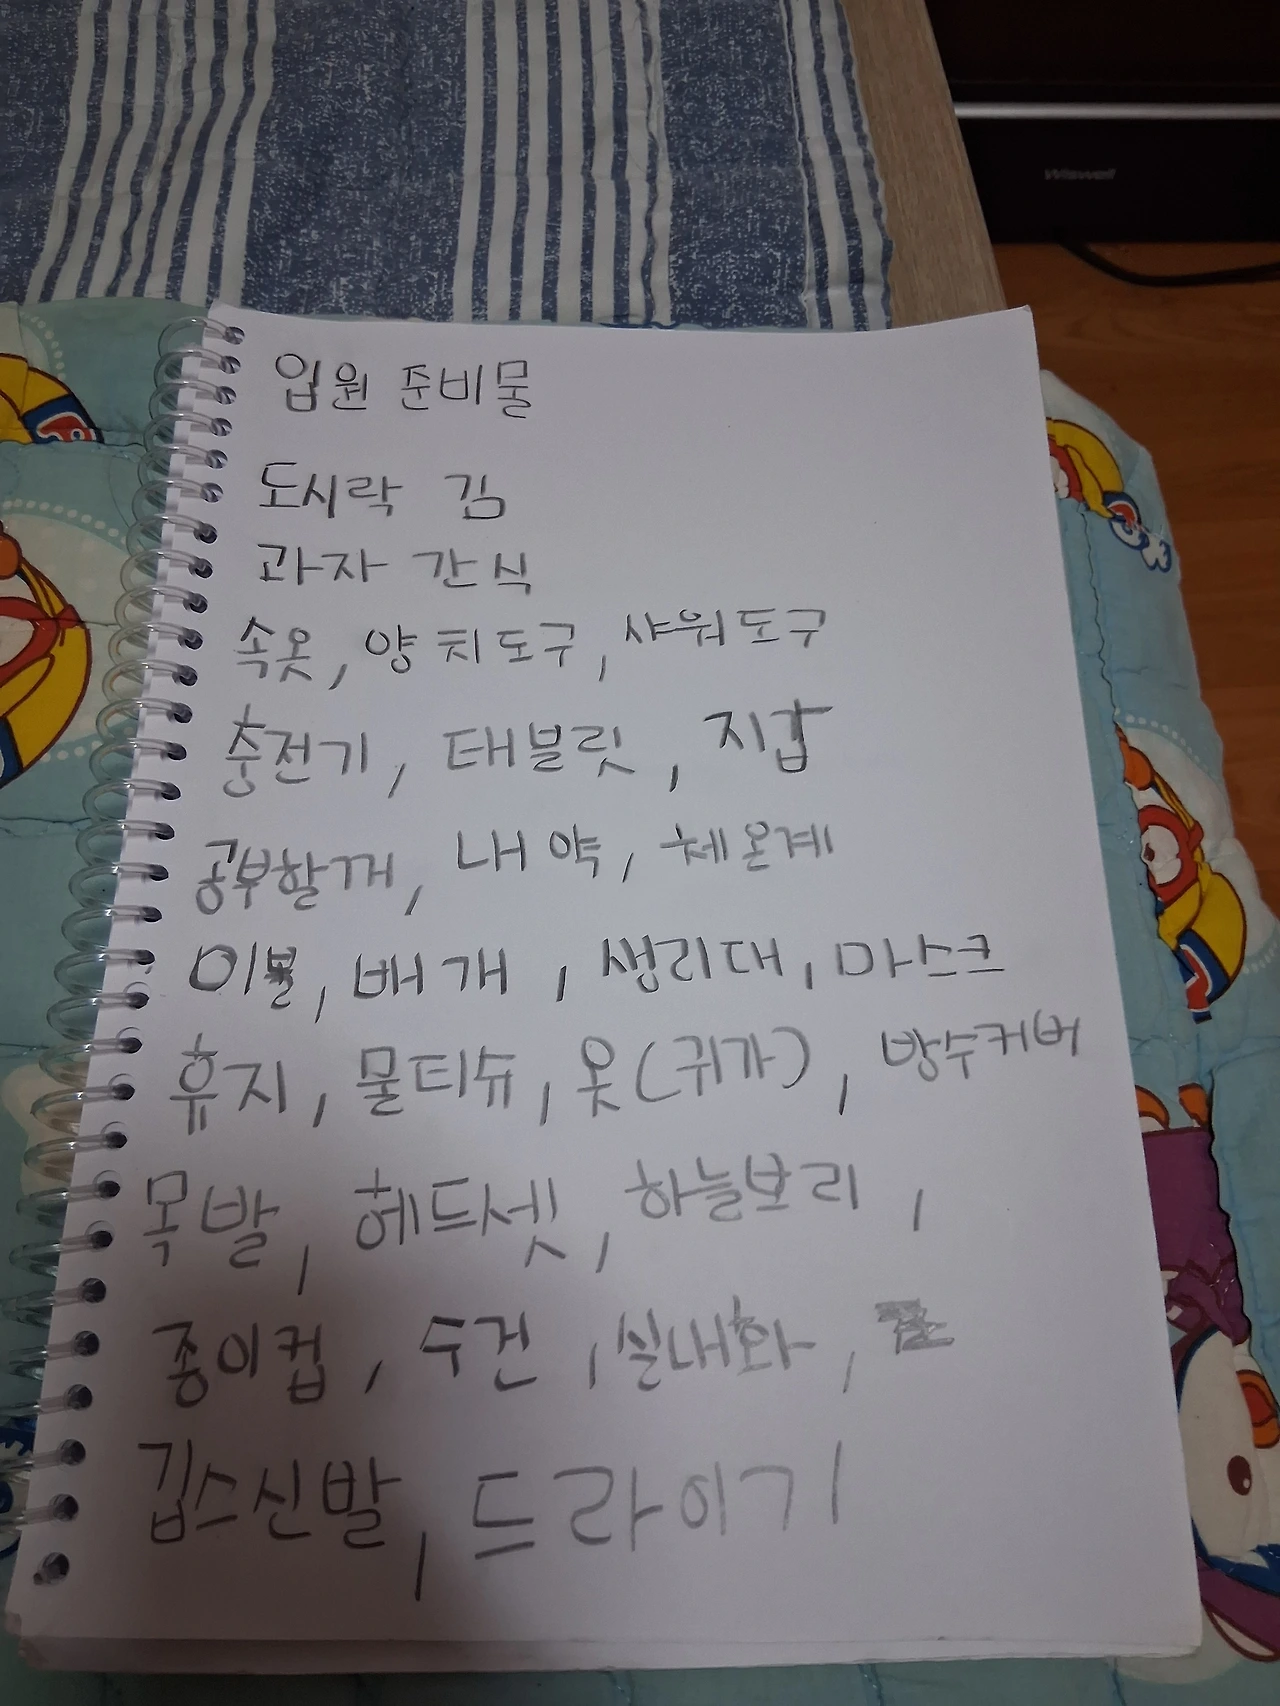 Wiswell
입원 준비물
도시락 김
과자 간식
속옷, 양치도구, 샤워도구
충전기, 태블릿, 지갑
공부할꺼, 내 약, 체온계
이불, 배개, 생리대, 마스크
휴지, 물티슈, 옷(귀가), 방수커버
목발, 헤드셋, 하늘보리,
종이컵, 수건, 실내화,
깁스신발, 드라이기